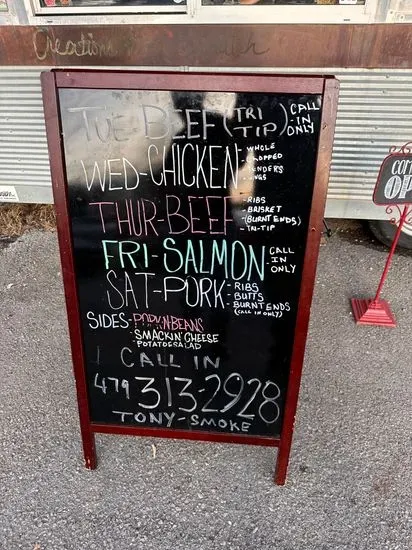 Creations
TUE BEEF (TRI TIP) CALL IN ONLY
WED-CHICKEN - WHOLE
- CHOPPED
- TENDERS
- WINGS
THUR-BEEF - RIBS
- BRISKET
- (BURNT ENDS)
- TRI-TIP
FRI-SALMON CALL IN ONLY
SAT-PORK - RIBS
- BUTTS
- BURNT ENDS
(CALL IN ONLY)
SIDES - PORK N BEANS
SMACKIN' CHEESE
POTATOE SALAD
CALL IN
479 313-2928
TONY-SMOKE